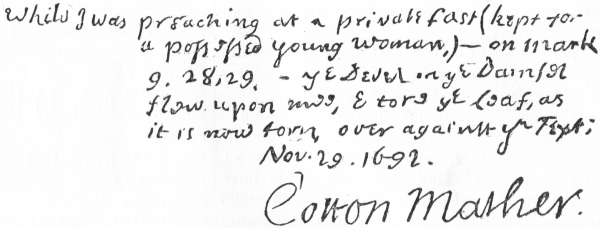 While I was preaching at a private fast (kept for
a possessed young woman,) — on Mark
9. 28, 29. — ye Devel in ye Damsel
flew upon mee, & tore ye leaf, as
it is now torn over against ye Text;
Nov. 29. 1692.
Cotton Mather.